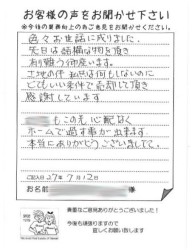 お客様の声をお聞かせ下さい
※今後の業務向上の為ご意見をお聞かせください。
色々お世話に成りました。
先日は結構な物を頂
有難う御座います。
土地の件 私共は何もしないのに
とても良い条件で売却して頂き
感謝しています
もこの先 心配なく
ホームで過す事が出来ます。
本当にありがとうございました。
ご記入日 27年 7月12日
お名前
貴重なご意見ありがとうございました！
今後も頑張りますので
宜しくお願い致します